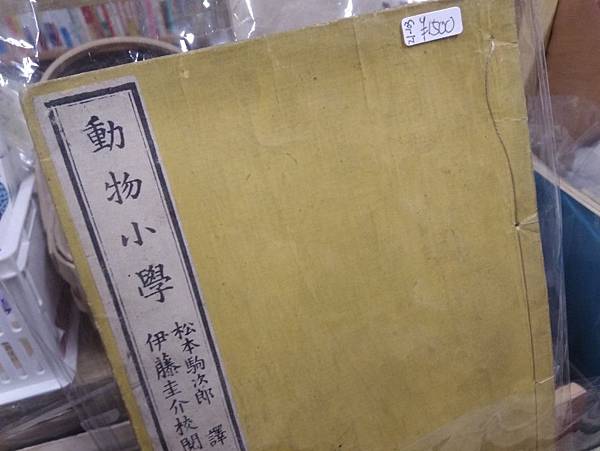 動物小學
松本駒次郎 譯
伊藤圭介校閲
¥1500